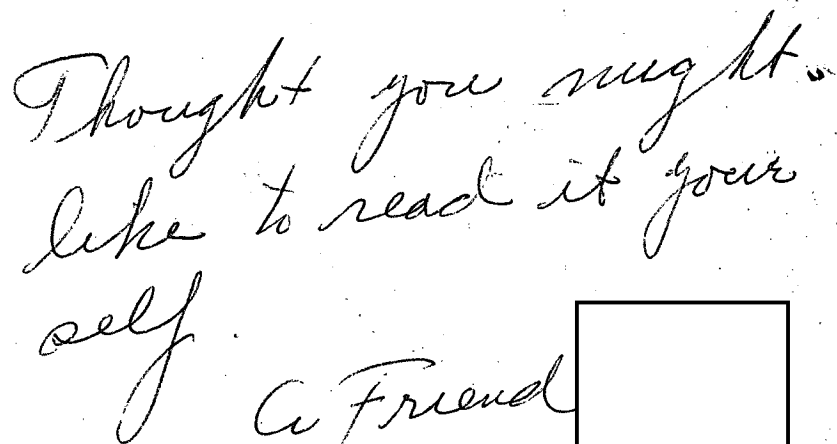 Thought you might
like to read it your
self.
A Friend